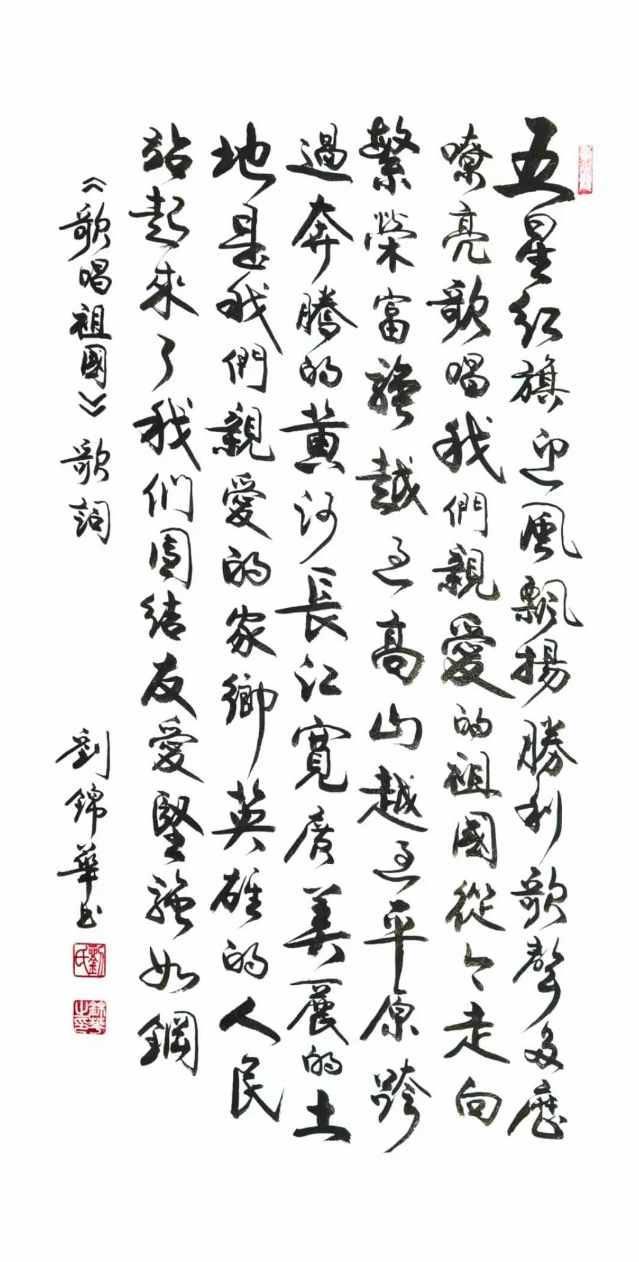 五星红旗迎風飄揚勝利歌聲多麽
嘹亮歌唱我們親愛的祖國從今走向
繁榮富強越过高山越过平原跨
過奔騰的黄河長江寬廣美麗的土
地是我們親愛的家鄉英雄的人民
站起來了我们團结友愛堅強如鋼
《歌唱祖國》歌詞
劉錦華书
劉氏